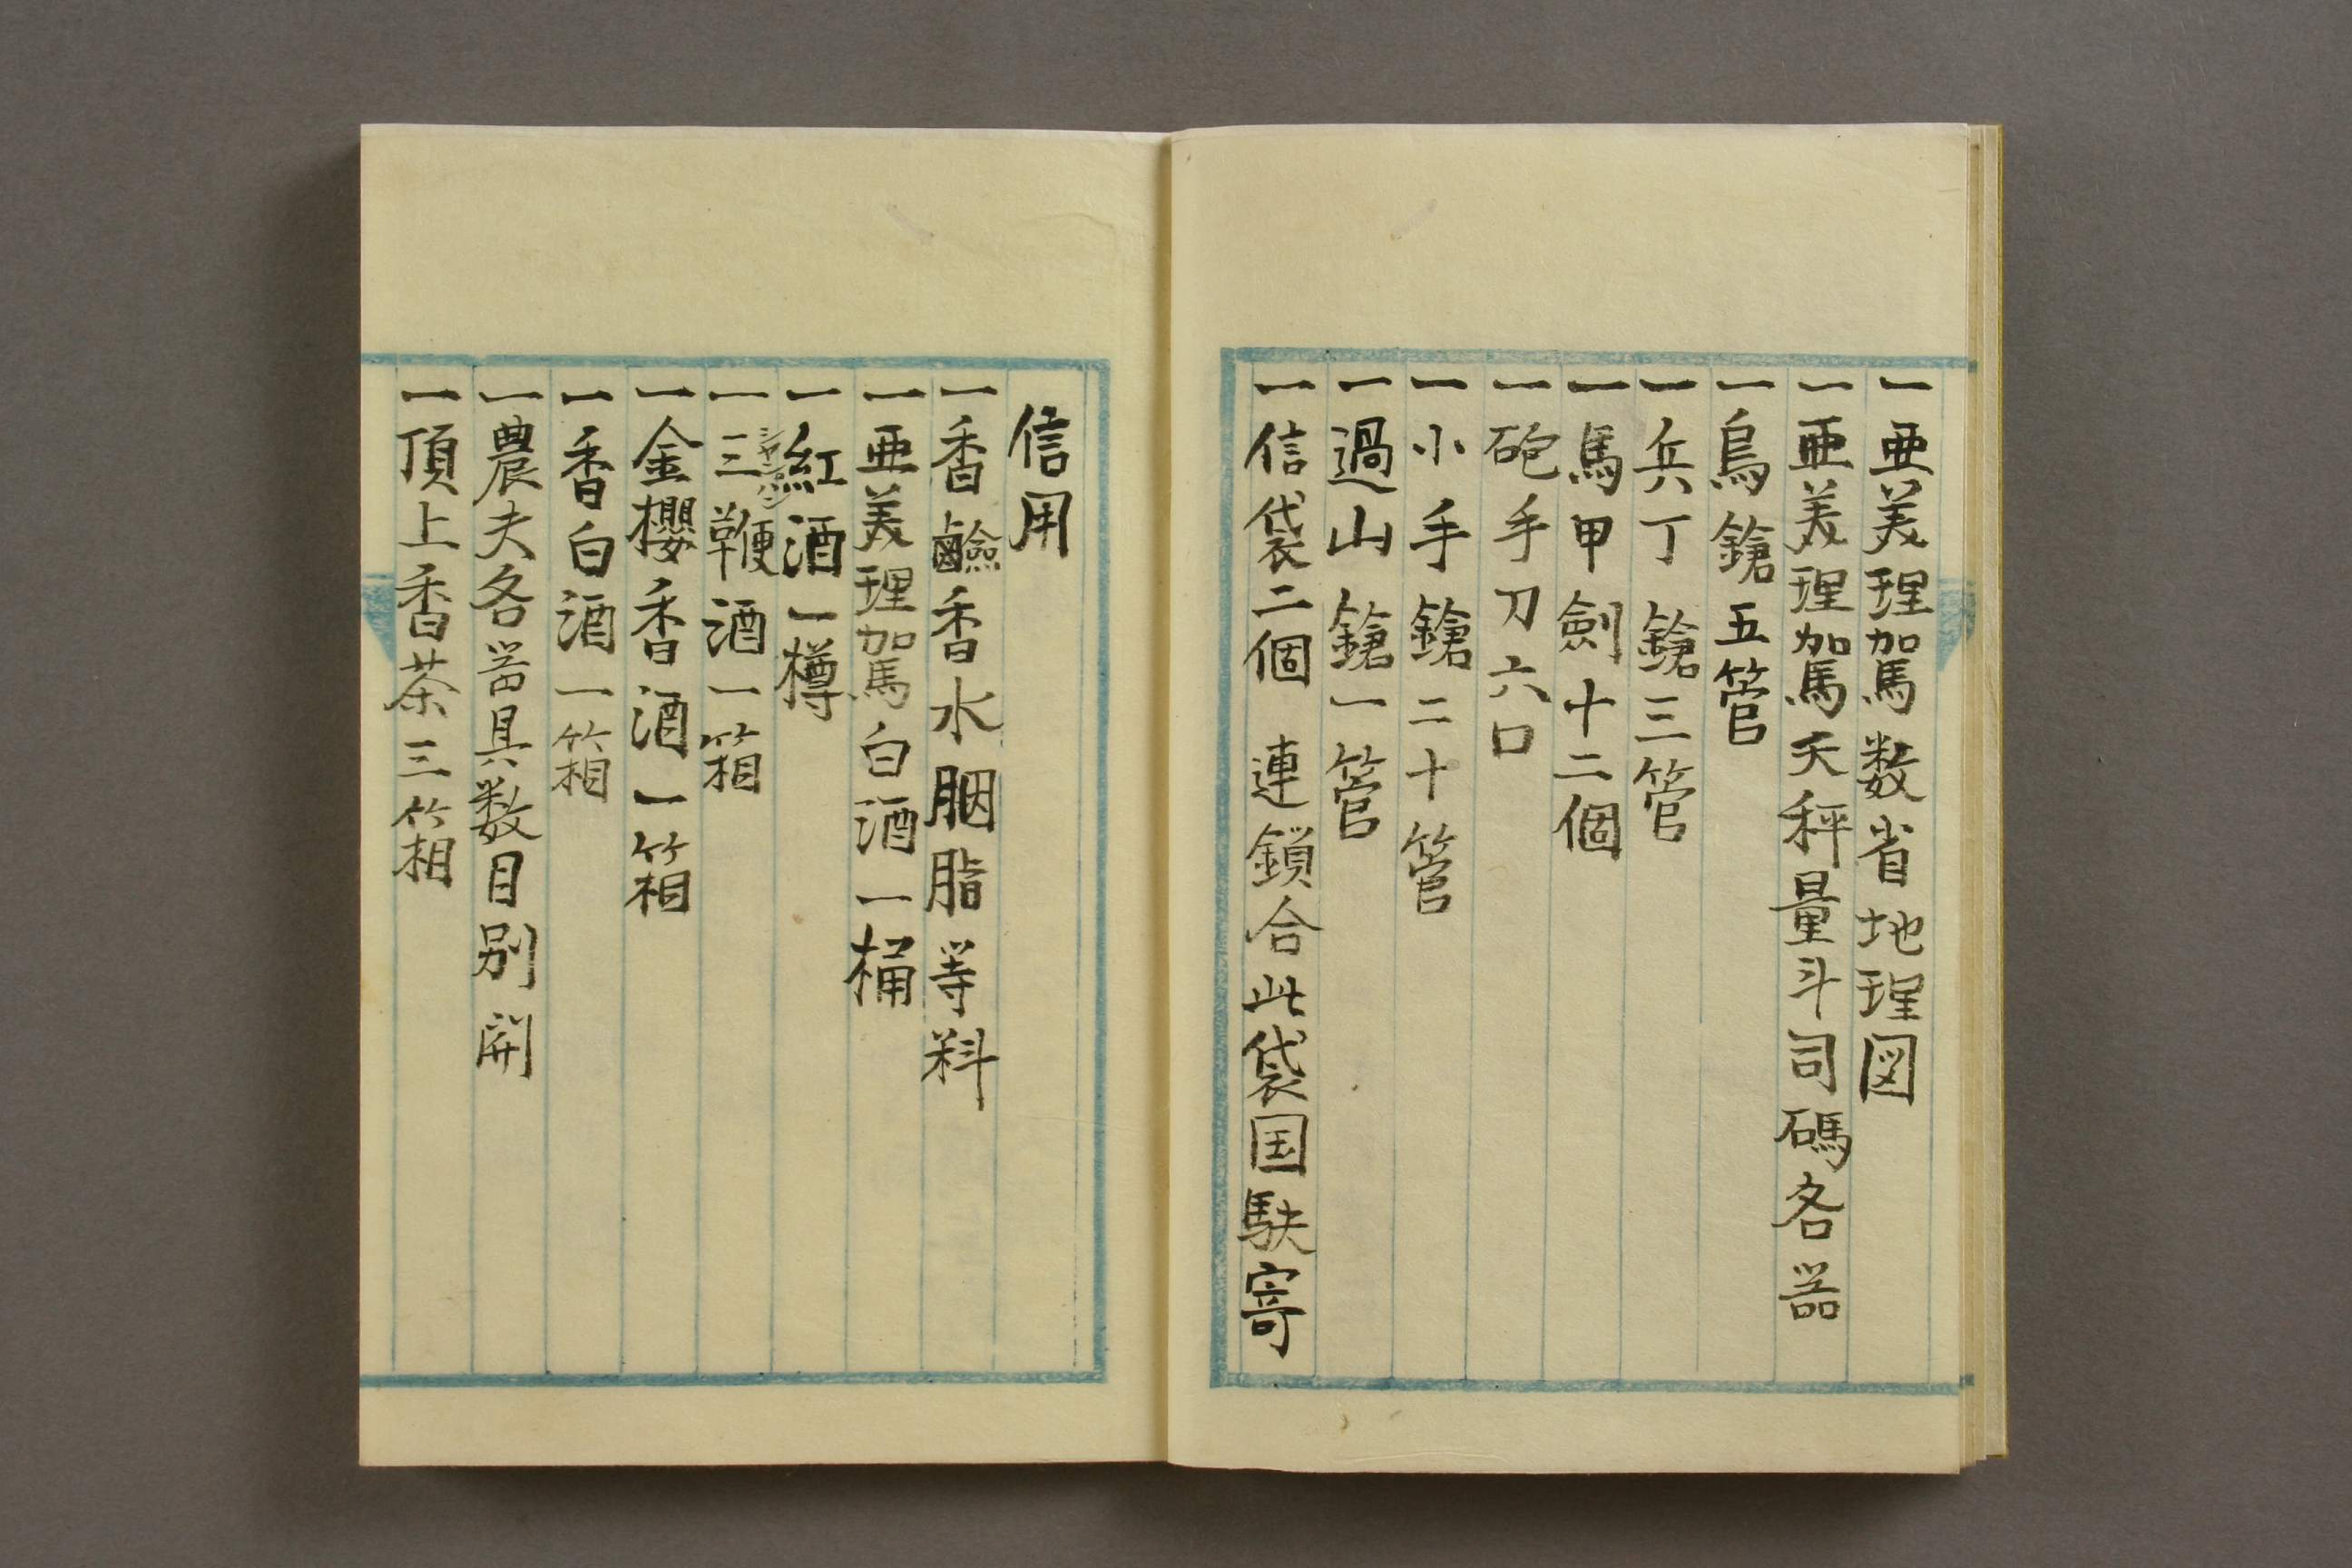 一亜美理駕数省地理図
一亜美理駕天秤量斗司碼各器
一鳥鎗五管
一兵丁鎗三管
一馬甲劍十二個
一砲手刀六口
一小手鎗二十管
一過山鎗一管
一信袋二個 連鎖合此袋国駃寄
信用
一香鹼香水胭脂等料
一亜美理駕白酒一桶
一紅酒一樽
一三鞭酒一箱
シャンパン
一金櫻香酒一箱
一香白酒一箱
一農夫各器具数目别開
一頂上香茶三箱